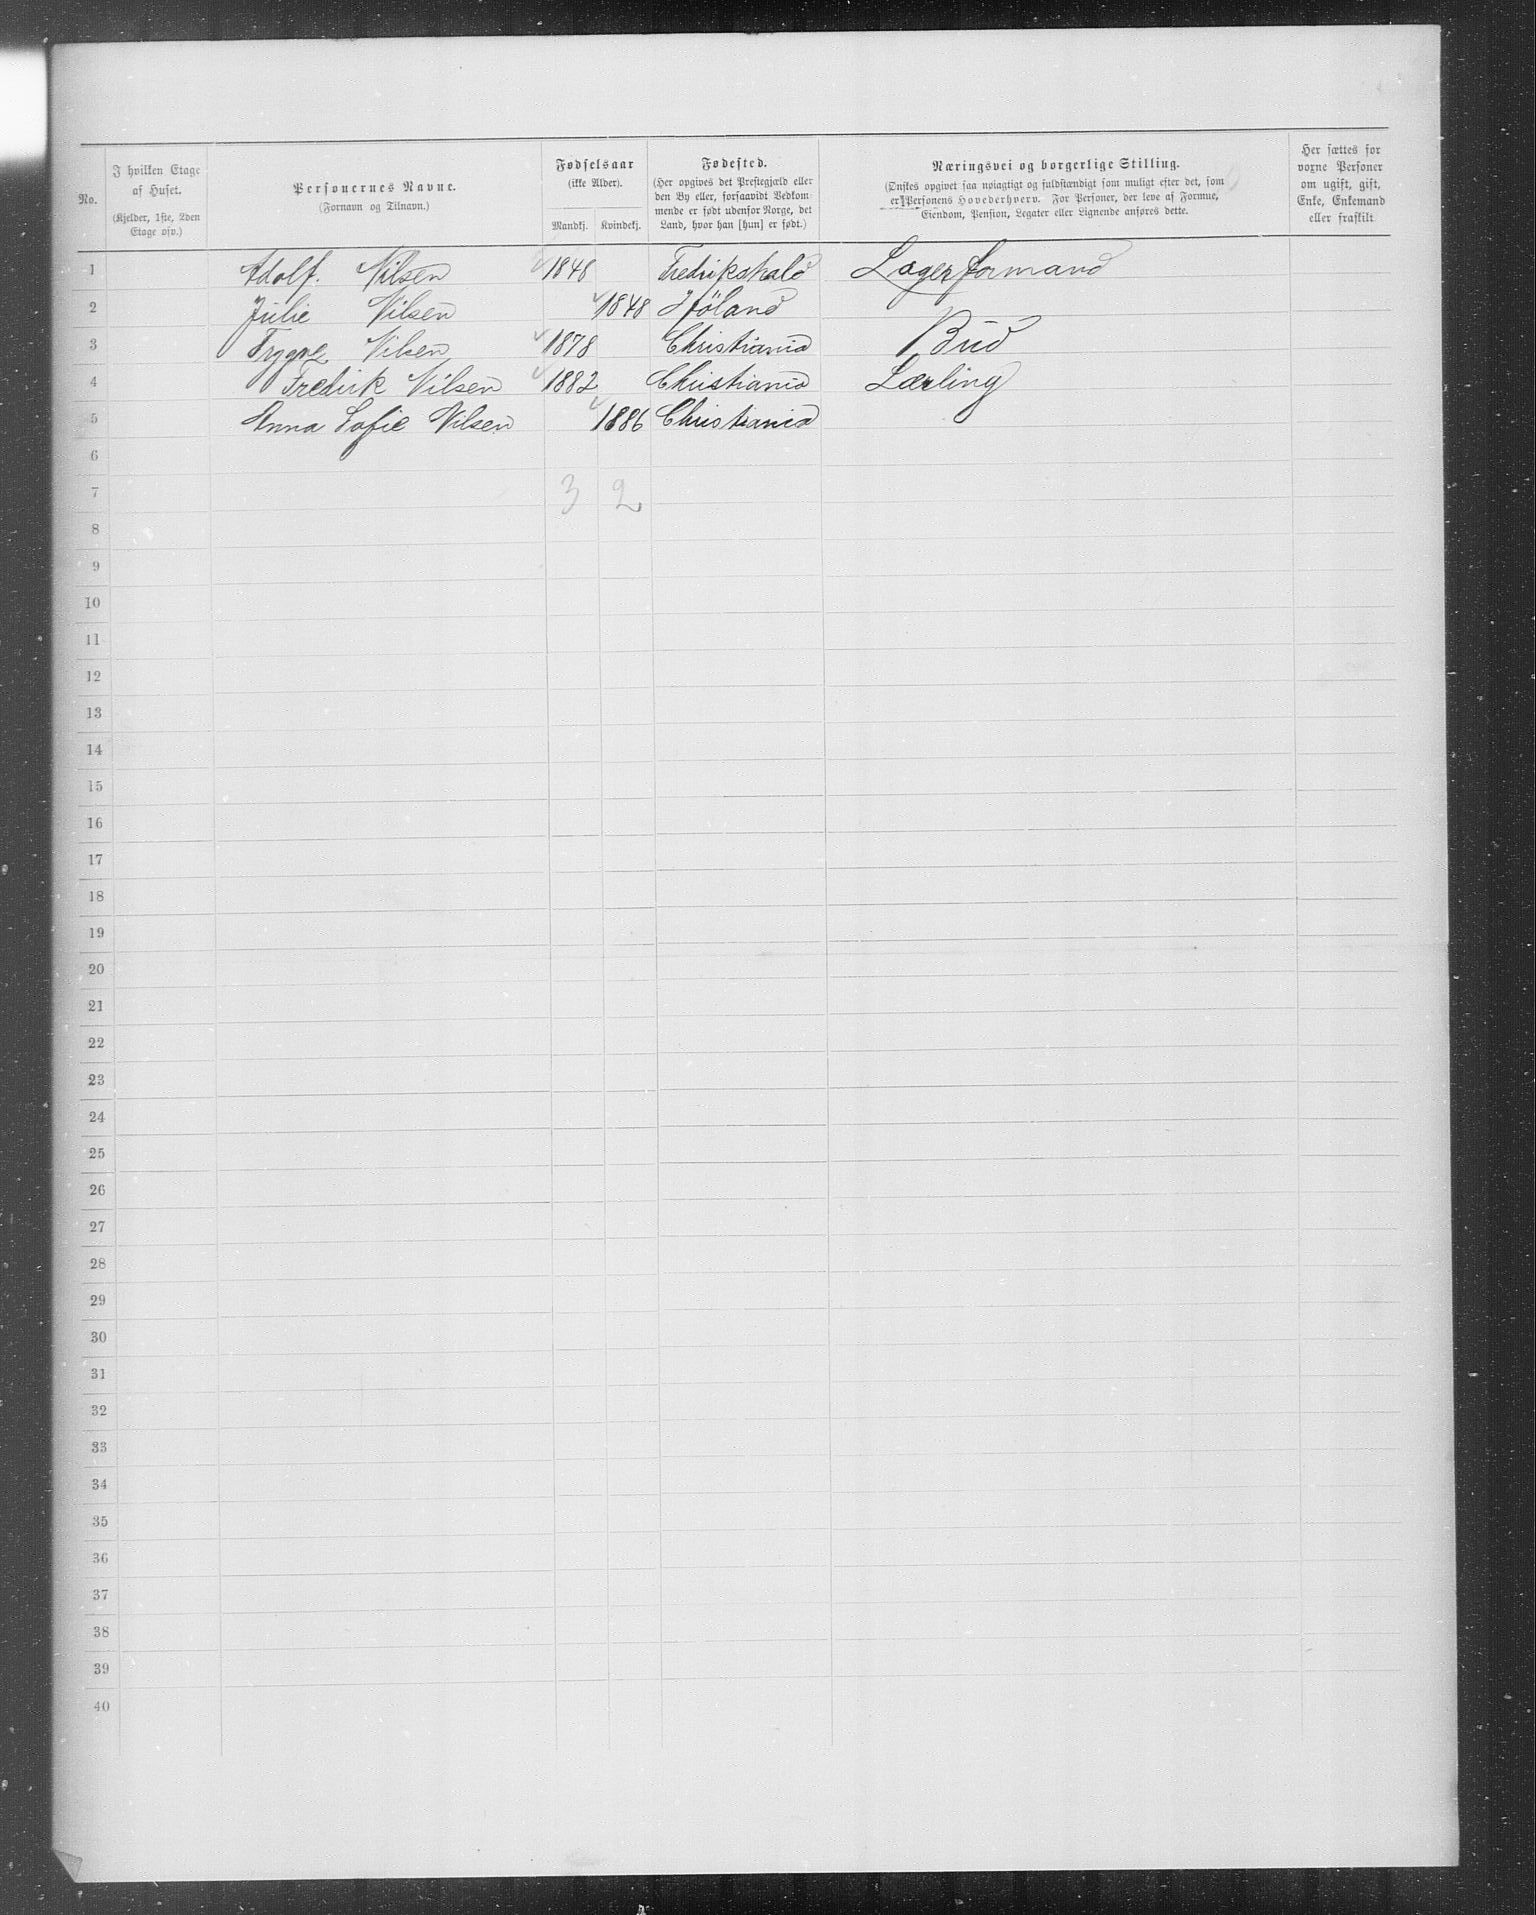 No.
I hvilken Etage af Huset.
(Kjelder, 1ste, 2den Etage osv.)
Personernes Navne.
(Fornavn og Tilnavn.)
Fødselsaar
(ikke Alder).
Mandkj. Kvindekj.
Fødested.
(Her opgives det Prestegjæld eller
den By eller, forsaavidt Vedkom-
mende er født udenfor Norge, det
Land, hvor han [hun] er født.)
Næringsvei og borgerlige Stilling.
(Ønskes opgivet saa nøiagtigt og fuldstændigt som muligt efter det, som
er Personens Hovederhverv. For Personer, der leve af Formue,
Eiendom, Pension, Legater eller Lignende anføres dette.
Her sættes for
voxne Personer
om ugift, gift,
Enke, Enkemand
eller fraskilt
1 Adolf. Nilsen 1848 Fredrikshald Lagerformand
2 Julie Nilsen 1848 Höland
3 Trygve Nilsen 1878 Christiania Bud
4 Fredrik Nilsen 1882 Christiania Lærling
5 Anna Sofie Nilsen 1886 Christiania
6
7 3 2
8
9
10
11
12
13
14
15
16
17
18
19
20
21
22
23
24
25
26
27
28
29
30
31
32
33
34
35
36
37
38
39
40